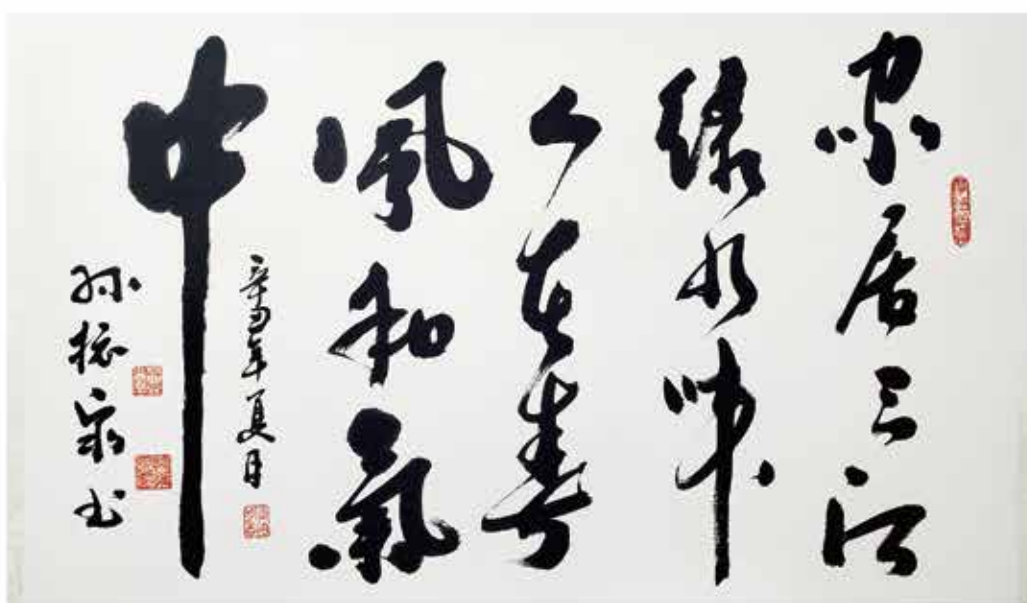 家居三江
绿水畔
人在春
風和氣
中
辛丑年夏日
孙书